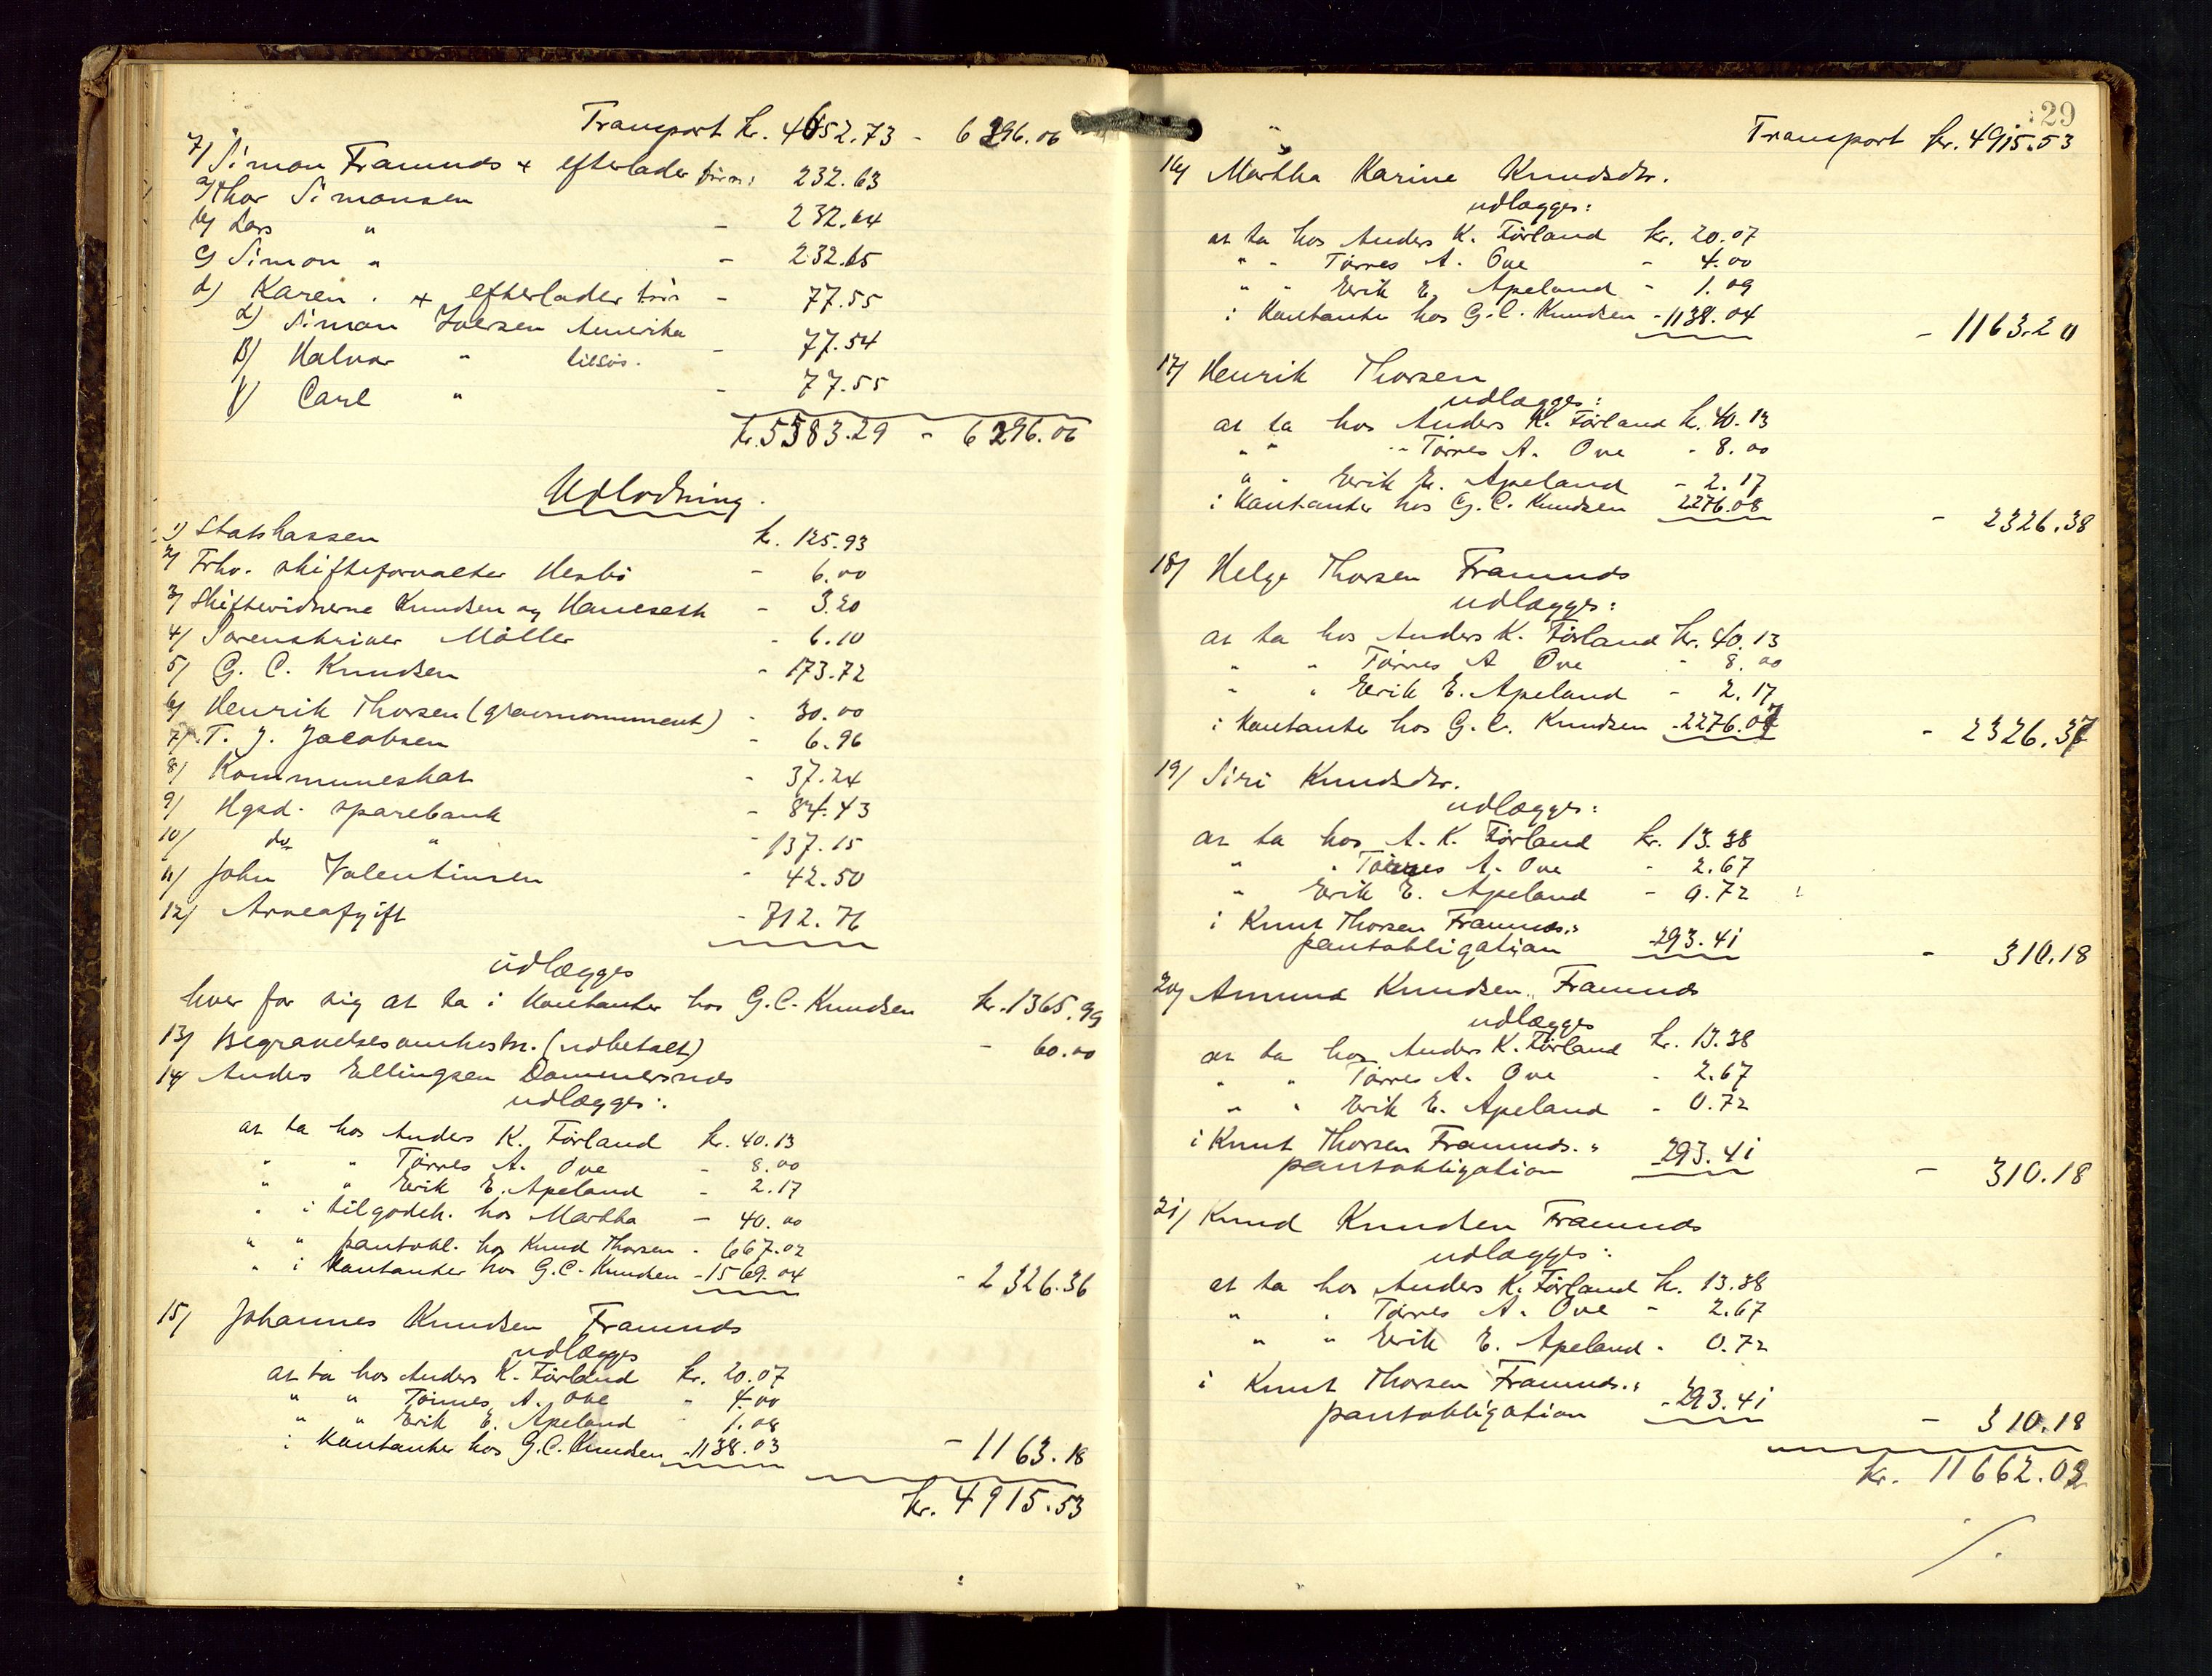 Transport kr. 4652.73 - 6296.06
7/ Simon Framnds + efterlader børn:
a/ Thor Simonsen 232.63
b/ Lars " - 232.64
c/ Simon " - 232.65
d/ Karen . + efterlader børn - 77.55
α) Simon Iversen Amerika
β) Halvor " tilsøs. - 77.54
γ) Carl " - 77.55
kr. 5583.29 - 6296.06
Udlodning.
1) Statskassen kr. 125.93
2/ Frhv. skifteforvalter Hesbö - 6.00
3/ Skiftevidnerne Knudsen og Haueseth - 3.20
4/ Sorenskriver Möller - 6.10
5/ G. C. Knudsen - 173.72
6/ Henrik Thorsen (gravmonument) - 30.00
7/ T. J. Jacobsen - 6.96
8/ Kommuneskat - 37.24
9/ Hgsd. sparebank - 84.43
10/ do " - 137.15
11/ John Valentinsen - 42.50
12/ Arveafgift - 712.76
udlægges
hver for sig at ta i Kontanter hos G. C. Knudsen kr. 1365.99
13/ Begravelsesomkostn. (udbetalt) - 60.00
14/ Anders Ellingsen Dommersnes
udlægges:
at ta hos Anders K. Förland kr. 40.13
" " Törres A. Ove - 8.00
" " Eerik E. Apeland - 2.17
" i tilgodeh. hos Martha - 40.00
" " pantobl. hos Knud Thorsen - 667.02
" i Kontanter hos G. C. Knudsen - 1569.04
- 2326.36
15/ Johannes Knudsen Framnds
udlægges
at ta hos Anders K. Förland kr. 20.07
" " Törres A. Ove " 4.00
" " Eerik E. Apeland - 1.08
i Kontanter hos G. C. Knudsen - 1138.03
- 1163.18
kr. 4915.53
29
Transport kr. 4915.53
16/ Martha Karine Knudsdtr.
udlægges:
at ta hos Anders K. Förland kr. 20.07
" - Törres A. Ove - 4.00
" - Eerik E. Apeland - 1.09
i Kontanter hos G. C. Knudsen - 1138.04
- 1163.20
17/ Henrik Thorsen
udlægges:
at ta hos Anders K. Förland kr. 40.13
" " - Törres A. Ove - 8.00
" " Eerik E. Apeland - 2.17
i Kontanter hos G. C. Knudsen 2276.08
- 2326.38
18/ Helge Thorsen Framnds
udlægges:
at ta hos Anders K. Förland kr. 40.13
" " Törres A Ove - 8.00
" " Eerik E. Apeland - 2.17
i Kontanter hos G. C. Knudsen - 2276.07
- 2326.37
19/ Siri Knudsdtr.
udlægges:
at ta hos A. K. Förland kr. 13.38
" " Törres A. Ove - 2.67
" Eerik E. Apeland - 0.72
i Knut Thorsen Framnds."
pantobligation - 293.41
- 310.18
20/ Amund Knudsen Framnds
udlægges
at ta hos Anders K. Förland kr. 13.38
" " Törres A. Ove - 2.67
" " Eerik E. Apeland - 0.72
i Knut Thorsen Framnds. "
pantobligation - 293.41
- 310.18
21/ Knud Knudsen Framnds
udlægges:
at ta hos Anders K. Förland kr. 13.38
" " Törres A. Ove - 2.67
" " Eerik E. Apeland - 0.72
i Knut Thorsen Framnds."
pantobligation - 293.41
- 310.18
kr. 11662.02